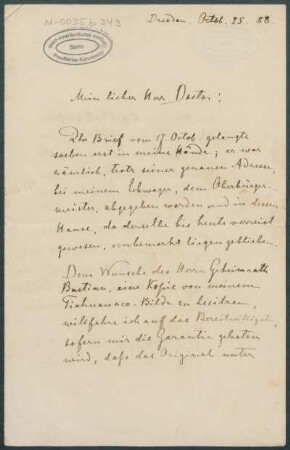 N-0035 b 349
Ibero-Amerikanisches Institut
Berlin
Preußischer Kulturbesitz
Dresden, Octob. 25. 88
Mein lieber Herr Doctor!
Ihr Brief vom 17 Octob. gelangte
soeben erst in meine Hände; er war
nämlich, trotz seiner genauen Adresse,
bei meinem Schwager, dem Oberbürger-
meister, abgegeben worden und in dessen
Hause, da derselbe bis heute verreist
gewesen, unbemerkt liegen geblieben.
Dem Wunsche des Herrn Geheimrath
Bastian, eine Kopie von meinem
Tiahuanaco-Bilde zu besitzen,
willfahre ich auf das Bereitwilligste,
sofern mir die Garantie geboten
wird, dass das Original unter